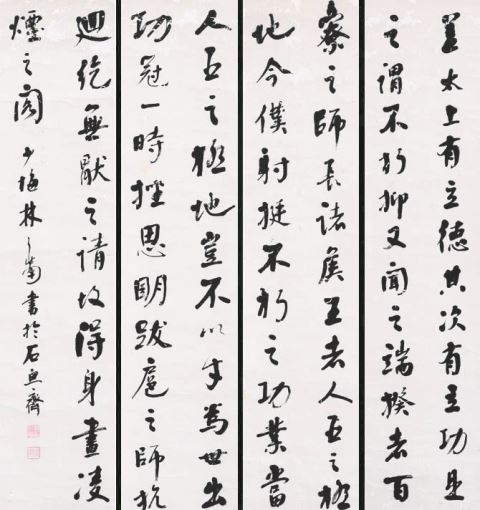 蓋太上有立德其次有立功是
之謂不朽抑又聞之端揆者百
寮之師長諸侯王者人臣之極
地今僕射挺不朽之功業當
人臣之極地豈不以才為世出
功冠一時挫思明跋扈之師抗
迴紇無厭之請故得身畫凌
煙之閣 少梅林之南書於石魚齋